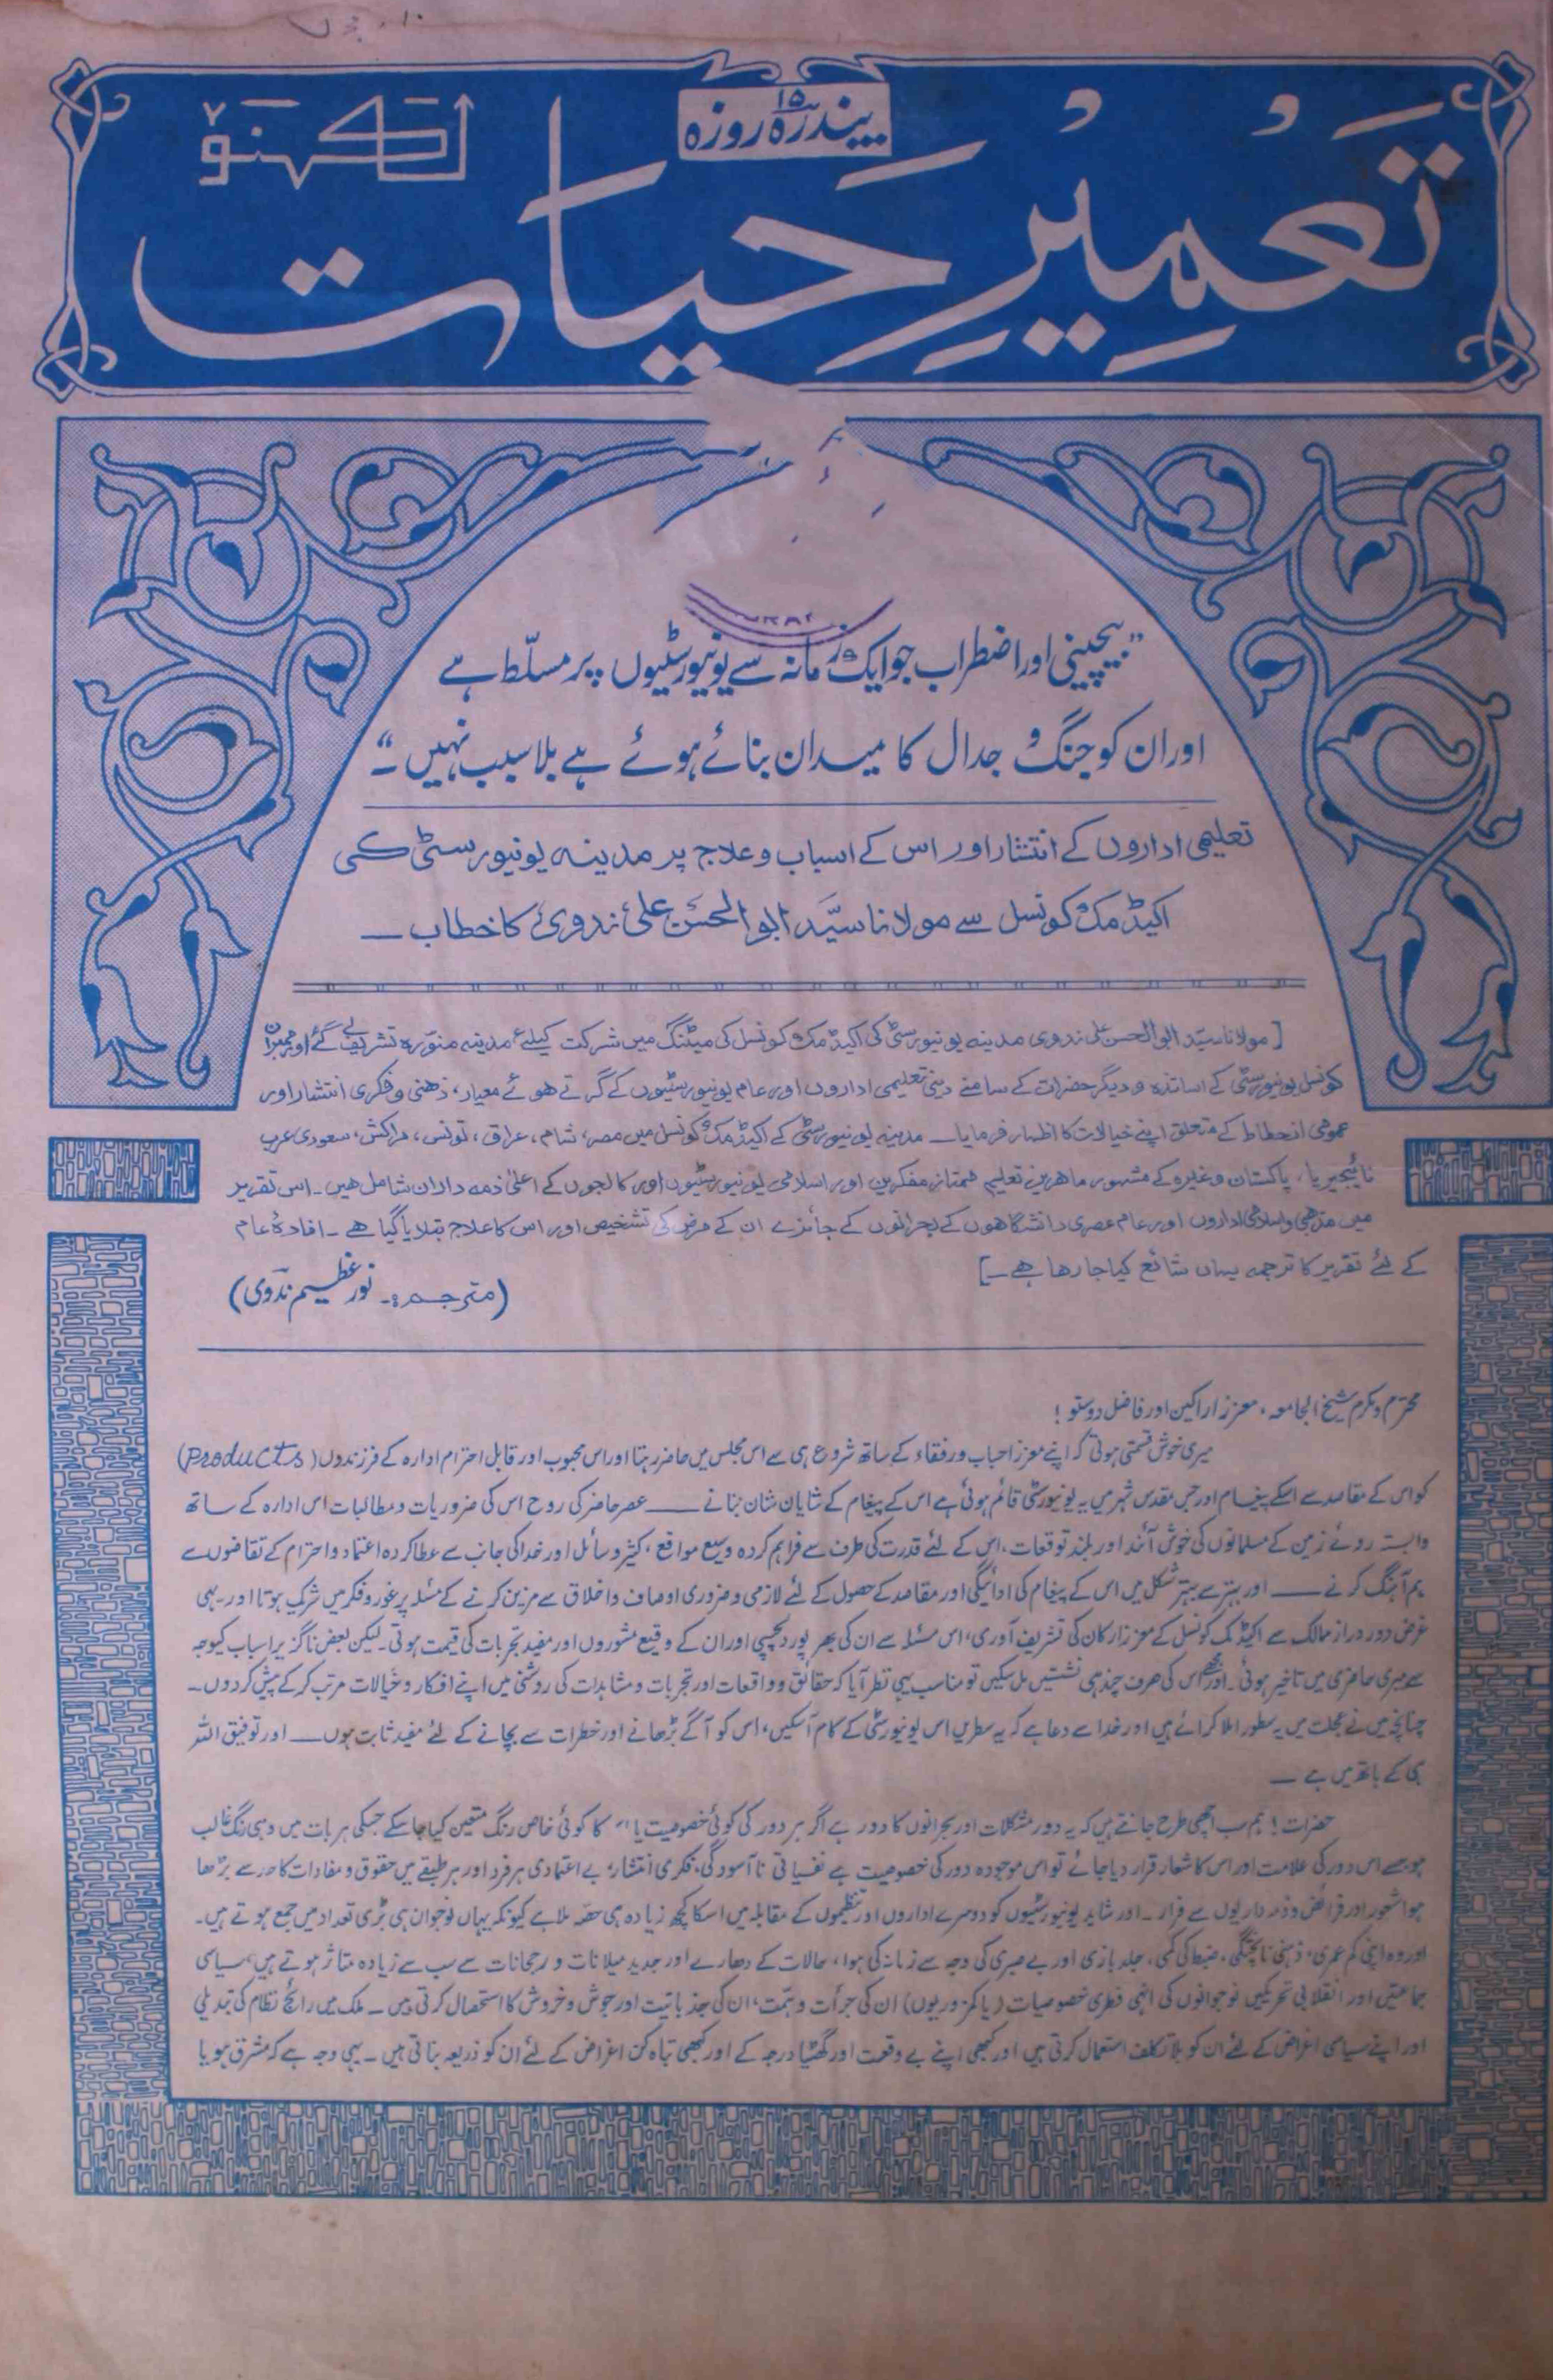 پندرہ روزہ
۱۵
تعمیرِ حیات
لکھنؤ
"بیچینی اور اضطراب جو ایک زمانہ سے یونیورسٹیوں پر مسلّط ہے
اور ان کو جنگ و جدال کا میدان بنائے ہوئے ہے بلا سبب نہیں۔"
تعلیمی اداروں کے انتشار اور اس کے اسباب و علاج پر مدینہ یونیورسٹی کی
اکیڈمک کونسل سے مولانا سیّد ابوالحسن علی ندوی کا خطاب ـــ
[مولانا سیّد ابوالحسن علی ندوی مدینہ یونیورسٹی کی اکیڈمک کونسل کی میٹنگ میں شرکت کیلئے مدینہ منوّرہ تشریف لے گئے اور ممبران
کونسل یونیورسٹی کے اساتذہ و دیگر حضرات کے سامنے دینی تعلیمی اداروں اور عام یونیورسٹیوں کے گرتے ہوئے معیار، ذہنی و فکری انتشار اور
عمومی انحطاط کے متعلق اپنے خیالات کا اظہار فرمایا ـــ مدینہ یونیورسٹی کے اکیڈمک کونسل میں مصر، شام، عراق، تونس، مراکش، سعودی عرب
نائیجیریا، پاکستان وغیرہ کے مشہور ماہرین تعلیم ممتاز مفکرین اور اسلامی یونیورسٹیوں اور کالجوں کے اعلیٰ ذمہ داران شامل ہیں۔ اس تقریر
میں مذہبی و اسلامی اداروں اور عام عصری دانشگاہوں کے بحرانوں کے جائزے ان کے مرض کی تشخیص اور اس کا علاج بتلایا گیا ہے ۔ افادۂ عام
کے لئے تقریر کا ترجمہ یہاں شائع کیا جا رہا ہے ـ]
(مترجم:۔ نور عظیم ندوی)
محترم و مکرم شیخ الجامعہ، معزز اراکین اور فاضل دوستو!
میری خوش قسمتی ہوتی کہ اپنے معزز احباب و رفقاء کے ساتھ شروع ہی سے اس مجلس میں حاضر رہتا اور اس محبوب اور قابل احترام ادارہ کے فرزندوں (Products)
کو اس کے مقاصد سے اسکے پیغام اور جس مقدس شہر میں یہ یونیورسٹی قائم ہوئی ہے اس کے پیغام کے شایان شان بنانے ـــ عصر حاضر کی روح اس کی ضروریات و مطالبات اس ادارہ کے ساتھ
وابستہ روئے زمین کے مسلمانوں کی خوش آئند اور بلند توقعات، اس کے لئے قدرت کی طرف سے فراہم کردہ وسیع مواقع، کثیر وسائل اور خدا کی جانب سے عطا کردہ اعتماد و احترام کے تقاضوں سے
ہم آہنگ کرنے ـــ اور بہتر سے بہتر شکل میں اس کے پیغام کی ادائیگی اور مقاصد کے حصول کے لئے لازمی و ضروری اوصاف و اخلاق سے مزین کرنے کے مسئلہ پر غور و فکر میں شریک ہوتا اور۔ یہی
غرض دور دراز ممالک سے اکیڈمک کونسل کے معزز ارکان کی تشریف آوری، اس مسئلہ سے ان کی بھر پور دلچسپی اور ان کے وقیع مشوروں اور مفید تجربات کی قیمت ہوتی۔ لیکن بعض ناگزیر اسباب کیوجہ
سے میری حاضری میں تاخیر ہوئی۔ اور مجھے اس کی صرف چند ہی نشستیں مل سکیں تو مناسب یہی نظر آیا کہ حقائق و واقعات اور تجربات و مشاہدات کی روشنی میں اپنے افکار و خیالات مرتب کر کے پیش کردوں۔
چنانچہ میں نے عجلت میں یہ سطور املا کرائے ہیں اور خدا سے دعا ہے کہ یہ سطریں اس یونیورسٹی کے کام آسکیں، اس کو آگے بڑھانے اور خطرات سے بچانے کے لئے مفید ثابت ہوں ـــ اور توفیق اللہ
ہی کے ہاتھ میں ہے ـــ
حضرات! ہم سب اچھی طرح جانتے ہیں کہ یہ دور مشکلات اور بحرانوں کا دور ہے اگر ہر دور کی کوئی خصوصیت یا اس کا کوئی خاص رنگ متعین کیا جاسکے جسکی ہر بات میں وہی رنگ غالب
ہو جسے اس دور کی علامت اور اس کا شعار قرار دیا جائے تو اس موجودہ دور کی خصوصیت ہے نفسیاتی نا آسودگی، فکری انتشار، بے اعتمادی ہر فرد اور ہر طبقے میں حقوق و مفادات کا حد سے بڑھا
ہوا شعور اور فرائض و ذمہ داریوں سے فرار۔ اور شاید یونیورسٹیوں کو دوسرے اداروں اور تنظیموں کے مقابلہ میں اسکا کچھ زیادہ ہی حصہ ملا ہے کیونکہ یہاں نوجوان ہی بڑی تعداد میں جمع ہوتے ہیں۔
اور وہ اپنی کم عمری، ذہنی ناپختگی، ضبط کی کمی، جلد بازی اور بے صبری کی وجہ سے زمانہ کی ہوا، حالات کے دھارے اور جدید میلانات و رجحانات سے سب سے زیادہ متاثر ہوتے ہیں، سیاسی
جماعتیں اور انقلابی تحریکیں نوجوانوں کی انہی فطری خصوصیات (یا کمزوریوں) ان کی جرأت و ہمّت، ان کی جذباتیت اور جوش و خروش کا استحصال کرتی ہیں ۔ ملک میں رائج نظام کی تبدیلی
اور اپنے سیاسی اغراض کے لئے ان کو بلا تکلف استعمال کرتی ہیں اور کبھی اپنے بے وقعت اور گھٹیا درجہ کے اور کبھی تباہ کن اغراض کے لئے ان کو ذریعہ بناتی ہیں ۔ یہی وجہ ہے کہ مشرق ہو یا